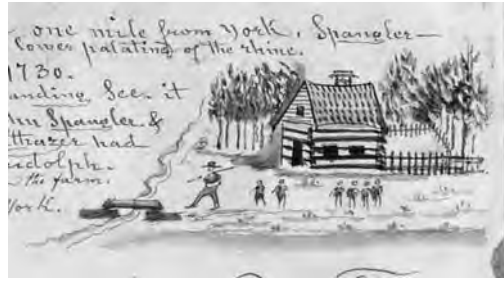 one mile from York, Spangler—
lower palating of the rhine.
1730.
anding See it
Spangler &
had
udolph.
the farm.
York.